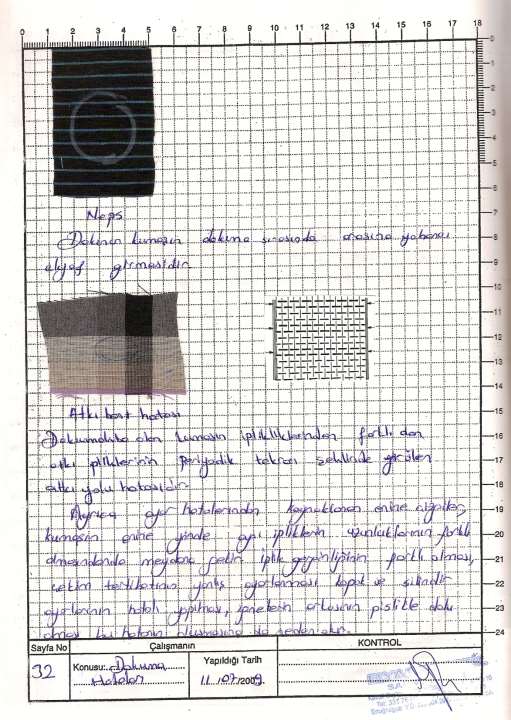 0 1 2 3 4 5 6 7 8 9 10 11 12 13 14 15 16 17 18
0
1
2
3
4
5
6
7
8
9
10
11
12
13
14
15
16
17
18
19
20
21
22
23
24
Neps
Dokunan kumaşın dokuma sırasında arasına yabancı
elyaf girmesidir.
Atkı bant hatası
Dokunmakta olan kumaşın ipliklerinden farklı olan
atkı ipliklerinin periyodik tekrarı şeklinde görülen
atkı yolu hatasıdır.
Ayrıca ayar hatalarından kaynaklanan enine çizgiler,
kumaşın enine yönde aynı ipliklerin uzunluklarının farklı
olmasından meydana gelen iplik gerginliğinin farklı olması,
çekim tertibatının yanlış ayarlanması kapak ve silindir
ayarlarının hatalı yapılması, arkasının pislikle dolu
olması bu hatanın oluşmasına neden olur.
Sayfa No
32
Çalışmanın
Konusu: Dokuma
Hataları
Yapıldığı Tarih
11/07/2009
KONTROL